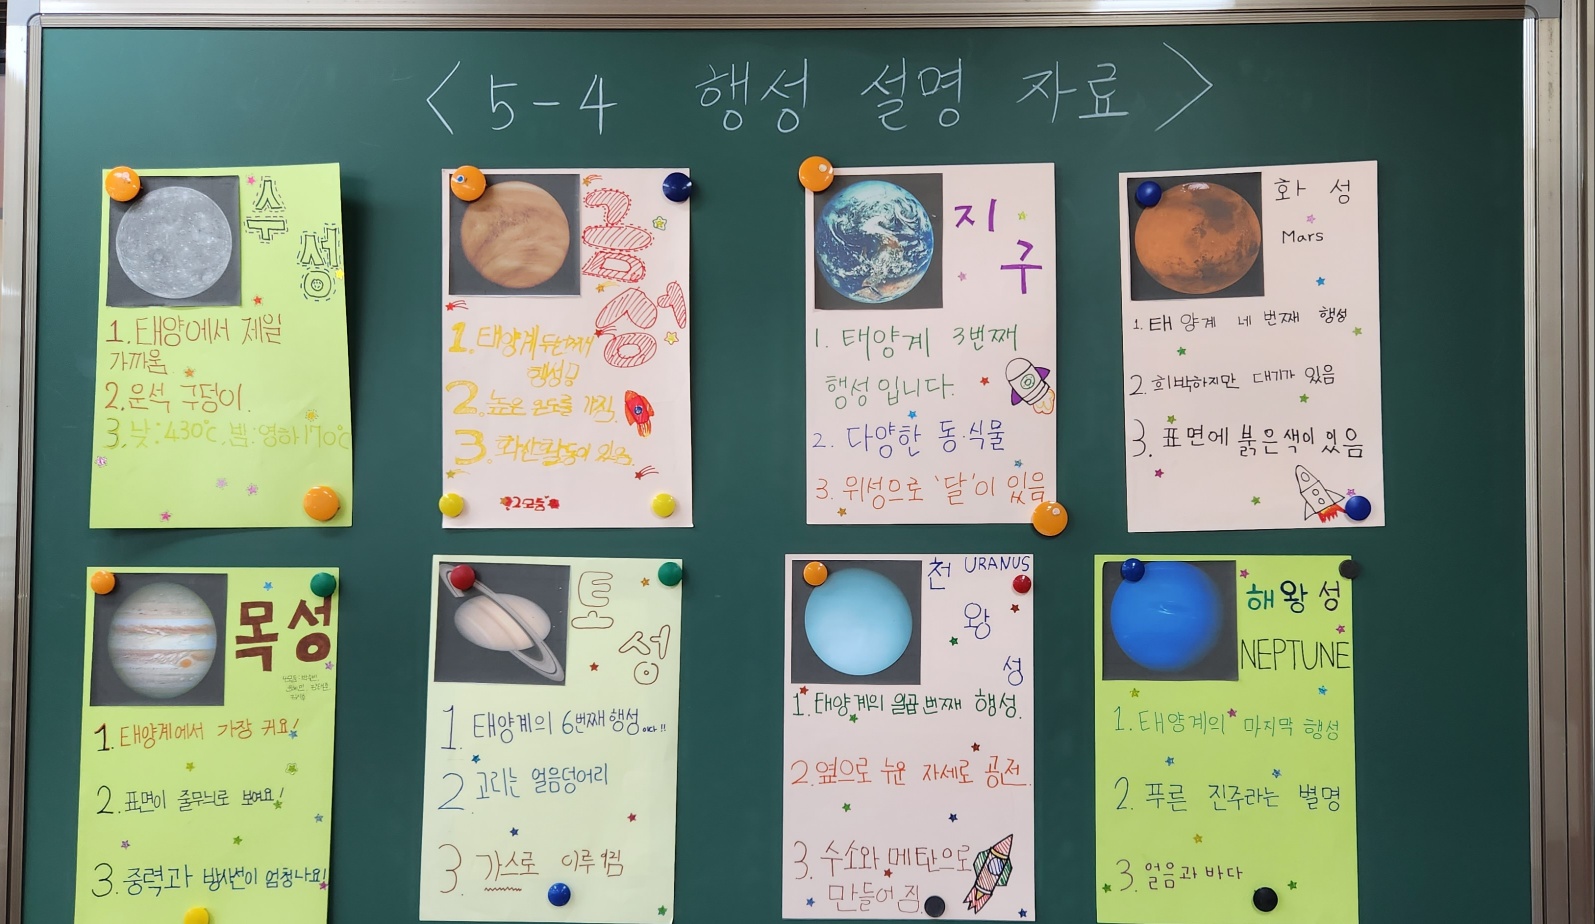 <5-4 행성 설명 자료>
수성
1. 태양에서 제일
가까움
2. 운석 구덩이.
3. 낮:430℃, 밤:영하170℃
금성
1. 태양계 두번째
행성임
2. 높은 온도를 가짐.
3. 화산활동이 있음.
2모둠
지구
1. 태양계 3번째
행성입니다.
2. 다양한 동·식물
3. 위성으로 '달'이 있음
화성
Mars
1. 태양계 네 번째 행성
2. 희박하지만 대기가 있음
3. 표면에 붉은색이 있음
목성
1. 태양계에서 가장 커요!
2. 표면이 줄무늬로 보여요!
3. 중력과 방사선이 엄청나요!
토성
1 태양계의 6번째 행성이다!!
2 고리는 얼음덩어리
3. 가스로 이루어짐
천왕성 URANUS
1. 태양계의 일곱 번째 행성.
2. 옆으로 누운 자세로 공전.
3. 수소와 메탄으로
만들어 짐.
해왕성
NEPTUNE
1. 태양계의 마지막 행성
2. 푸른 진주라는 별명
3. 얼음과 바다